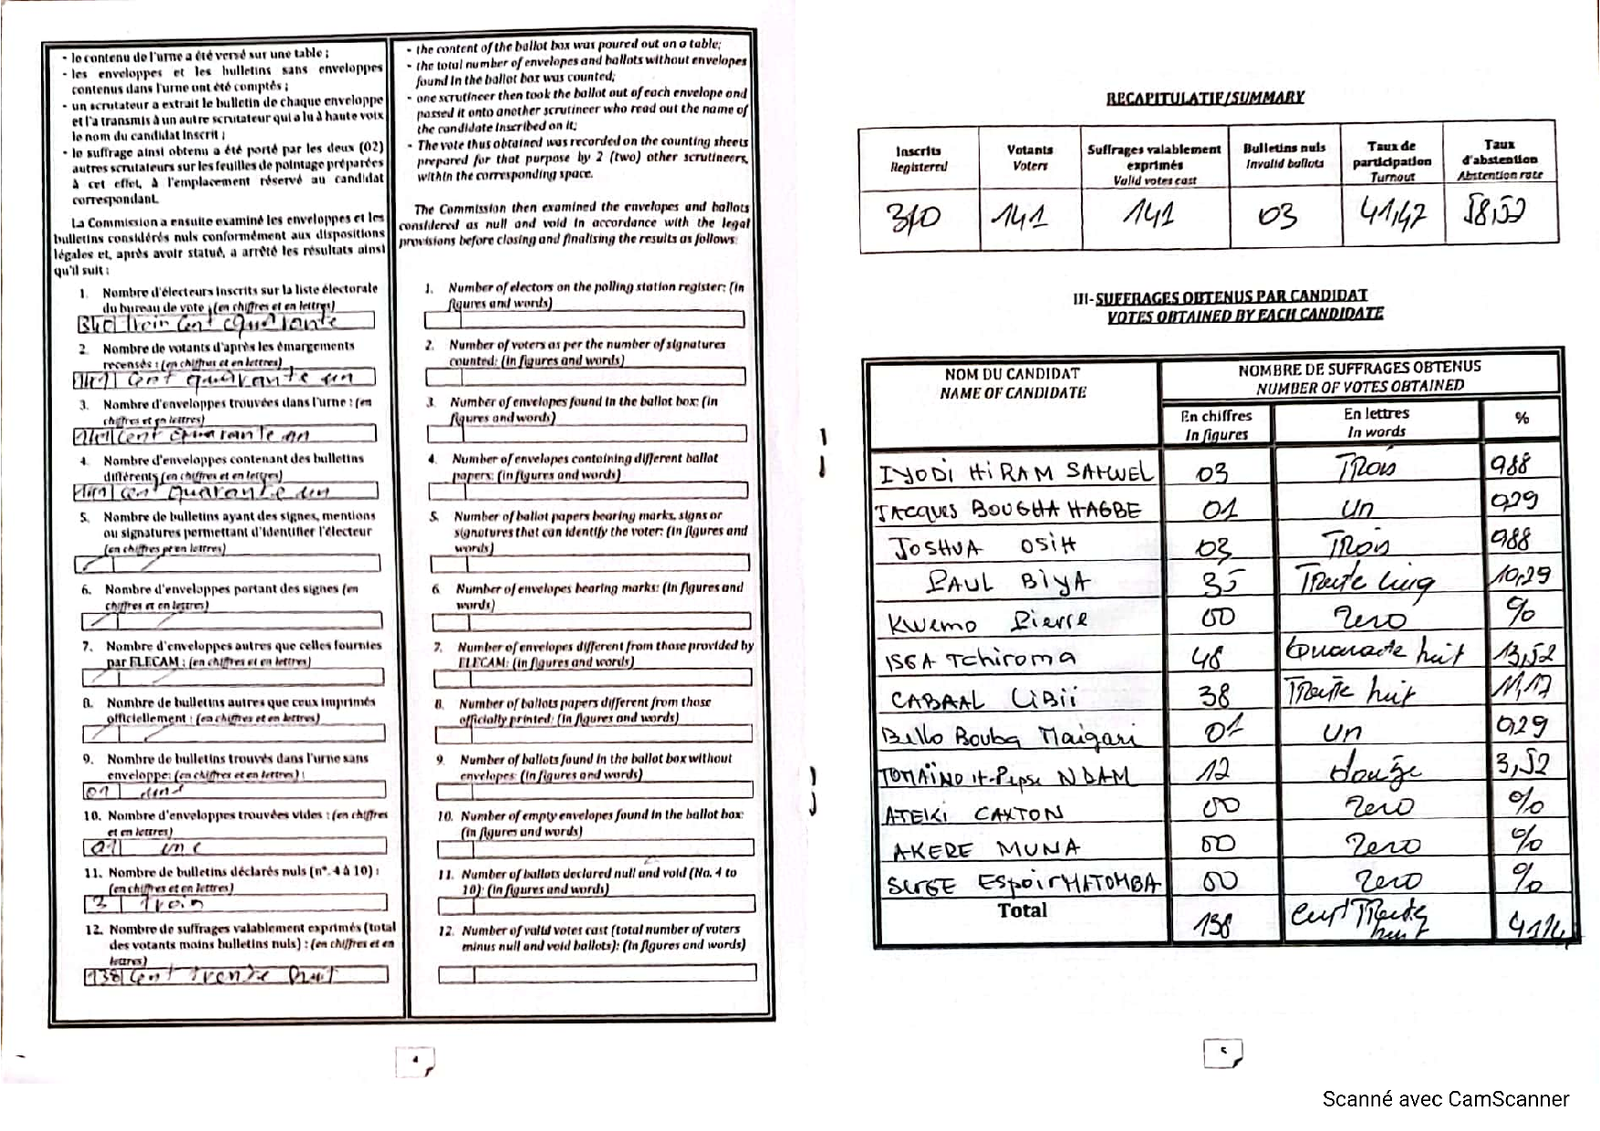 - le contenu de l'urne a été versé sur une table ;
- les enveloppes et les bulletins sans enveloppes
contenus dans l'urne ont été comptés ;
- un scrutateur a extrait le bulletin de chaque enveloppe
et l'a transmis à un autre scrutateur qui a lu à haute voix
le nom du candidat inscrit ;
- le suffrage ainsi obtenu a été porté par les deux (02)
autres scrutateurs sur les feuilles de pointage préparées
à cet effet, à l'emplacement réservé au candidat
correspondant.
La Commission a ensuite examiné les enveloppes et les
bulletins considérés nuls conformément aux dispositions
légales et, après avoir statué, a arrêté les résultats ainsi
qu'il suit :
1. Nombre d'électeurs inscrits sur la liste électorale
du bureau de vote : (en chiffres et en lettres)
340 trois Cent quarante
2. Nombre de votants d'après les émargements
recensés : (en chiffres et en lettres)
141 Cent quarante un
3. Nombre d'enveloppes trouvées dans l'urne : (en
chiffres et en lettres)
141 Cent quarante un
4. Nombre d'enveloppes contenant des bulletins
différents : (en chiffres et en lettres)
141 Cent quarante un
5. Nombre de bulletins ayant des signes, mentions
ou signatures permettant d'identifier l'électeur
(en chiffres et en lettres)
6. Nombre d'enveloppes portant des signes (en
chiffres et en lettres)
7. Nombre d'enveloppes autres que celles fournies
par ELECAM : (en chiffres et en lettres)
8. Nombre de bulletins autres que ceux imprimés
officiellement : (en chiffres et en lettres)
9. Nombre de bulletins trouvés dans l'urne sans
enveloppe: (en chiffres et en lettres) :
01 une
10. Nombre d'enveloppes trouvées vides : (en chiffres
et en lettres)
01 une
11. Nombre de bulletins déclarés nuls (n°. 4 à 10) :
(en chiffres et en lettres)
3 trois
12. Nombre de suffrages valablement exprimés (total
des votants moins bulletins nuls) : (en chiffres et en
lettres)
138 Cent trente huit
- the content of the ballot box was poured out on a table;
- the total number of envelopes and ballots without envelopes
found in the ballot box was counted;
- one scrutineer then took the ballot out of each envelope and
passed it onto another scrutineer who read out the name of
the candidate inscribed on it;
- The vote thus obtained was recorded on the counting sheets
prepared for that purpose by 2 (two) other scrutineers,
within the corresponding space.
The Commission then examined the envelopes and ballots
considered as null and void in accordance with the legal
provisions before closing and finalising the results as follows:
1. Number of electors on the polling station register: (in
figures and words)
2. Number of voters as per the number of signatures
counted: (in figures and words)
3. Number of envelopes found in the ballot box: (in
figures and words)
4. Number of envelopes containing different ballot
papers: (in figures and words)
5. Number of ballot papers bearing marks, signs or
signatures that can identify the voter: (in figures and
words)
6. Number of envelopes bearing marks: (in figures and
words)
7. Number of envelopes different from those provided by
ELECAM: (in figures and words)
8. Number of ballots papers different from those
officially printed: (in figures and words)
9. Number of ballots found in the ballot box without
envelopes: (in figures and words)
10. Number of empty envelopes found in the ballot box:
(in figures and words)
11. Number of ballots declared null and void (No. 4 to
10): (in figures and words)
12. Number of valid votes cast (total number of voters
minus null and void ballots): (in figures and words)
4
RECAPITULATIF/SUMMARY
Inscrits Votants Suffrages valablement exprimés Bulletins nuls Taux de participation Taux d'abstention
Registered Voters Valid votes cast Invalid ballots Turnout Abstention rate
340 141 141 03 41,47 58,52
III- SUFFRAGES OBTENUS PAR CANDIDAT
VOTES OBTAINED BY EACH CANDIDATE
NOM DU CANDIDAT NOMBRE DE SUFFRAGES OBTENUS
NAME OF CANDIDATE NUMBER OF VOTES OBTAINED
En chiffres En lettres %
In figures In words
IYODI HIRAM SAMUEL 03 Trois 0,88
JACQUES BOUGHA HAGBE 01 Un 0,29
JOSHUA OSIH 03 Trois 0,88
PAUL BIYA 35 Trente Cinq 10,29
Kwemo Pierre 00 Zero %
ISSA Tchiroma 48 Quarante huit 13,52
CABRAL LIBII 38 Trente huit 11,17
Bello Bouba Maigari 01 un 0,29
TOMAÏNO H-Peps NDAM 12 douze 3,52
ATEKI CAXTON 00 Zero %
AKERE MUNA 00 Zero %
SERGE Espoir MATOMBA 00 Zero %
Total 138 Cent Trente huit
5
Scanné avec CamScanner